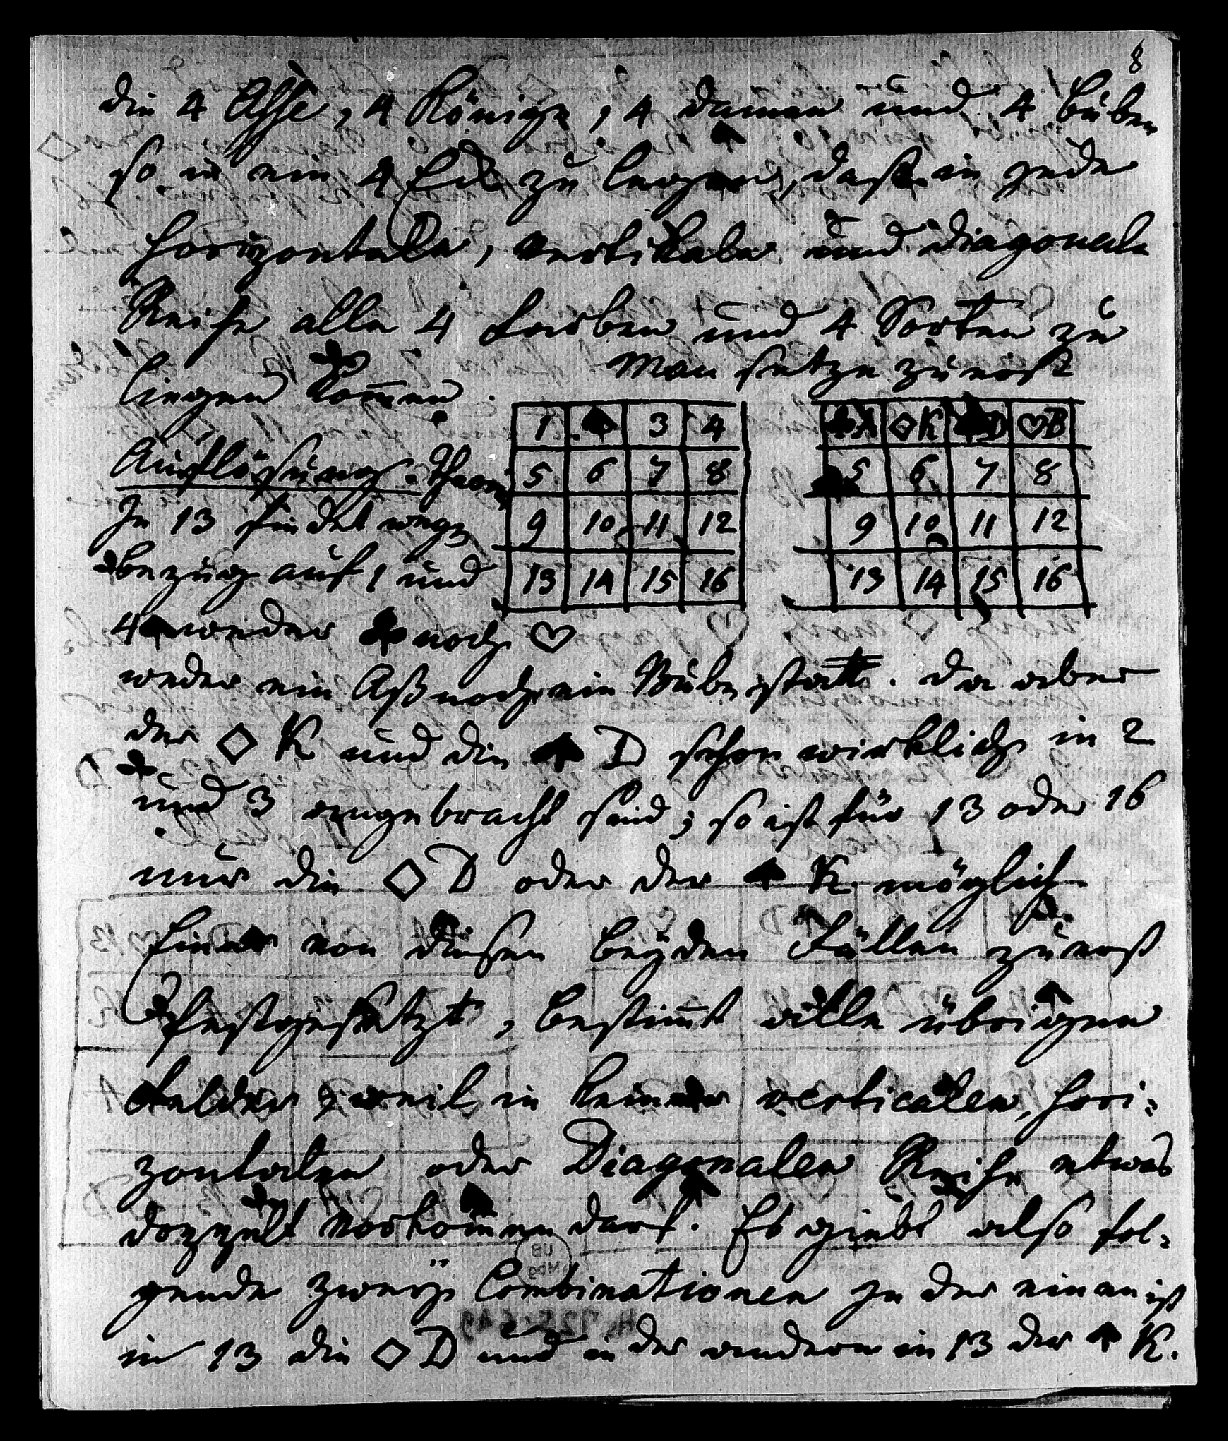 8
die 4 Asse, 4 Könige, 4 Damen und 4 Buben
so in ein 4 Eck zu legen, daß in jede
horizontale, vertikale und diagonale
Reihe alle 4 Farben und 4 Sorten zu
liegen kom̄en.
Man setze zuerst
1 3 4
5 6 7 8
9 10 11 12
13 14 15 16
♣A ◇K ♠D ♡B
5 6 7 8
9 10 11 12
13 14 15 16
Auflösung.
In 13 findet wegen
bezug auf 1 und
4 weder ♣ noch ♡
weder ein Aß noch ein Bube statt. Da aber
der ◇ K und die ♠ D schon wirklich in 2
und 3 angebracht sind; so ist für 13 oder 16
nur die ◇ D oder der ♠ K möglich
Einer von diesen beyden Fällen zuerst
festgesetzt, bestim̄t alle übrigen
Felder weil in keiner verticalen, hori-
zontalen oder Diagonalen Reihe etwas
doppelt vorkom̄en darf. Es giebt also fol-
gende zwey Combinationen in der einen ist
in 13 die ◇ D und in der andern in 13 der ♠ K.